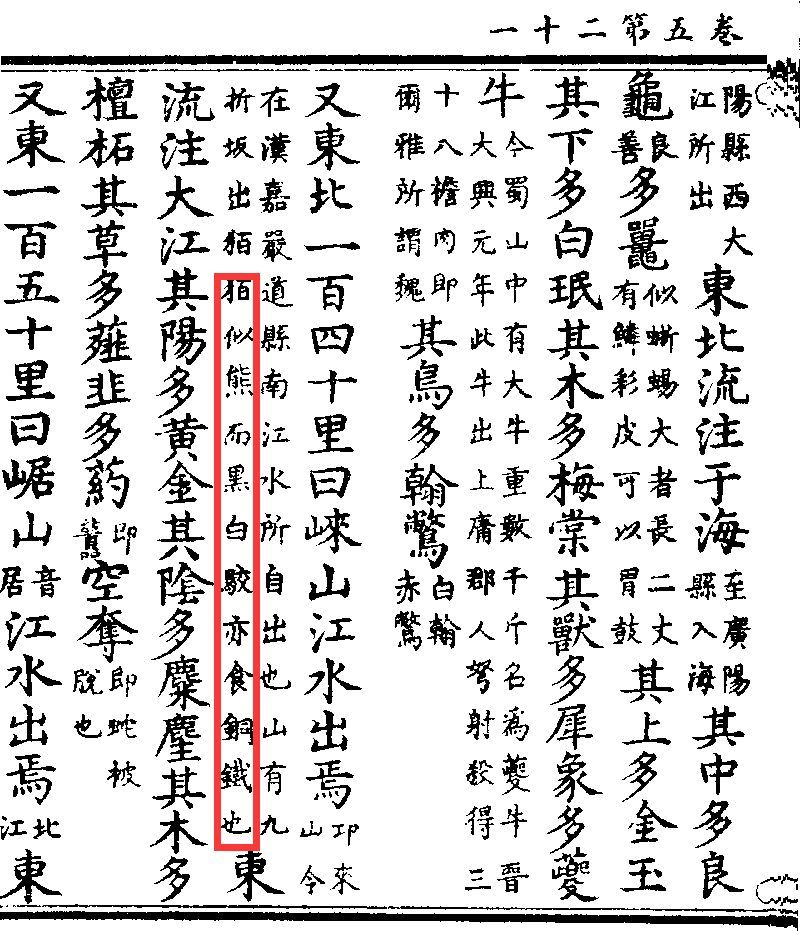 卷五第二十一
陽縣西大江所出東北流注于海至廣陽縣入海其中多良
龜良善多鼉似蜥蜴大者長二丈有鱗彩皮可以冒鼓其上多金玉
其下多白珉其木多梅棠其獸多犀象多夔
牛今蜀山中有大牛重數千斤名為夔牛晉大興元年此牛出上庸郡人弩射殺得三
十八擔肉即爾雅所謂魏其鳥多翰鷩白翰赤鷩
又東北一百四十里曰崍山江水出焉邛來山今
在漢嘉嚴道縣南江水所自出也山有九折坂出狛狛似熊而黑白駮亦食銅鐵也東
流注大江其陽多黃金其陰多麋麈其木多
檀柘其草多薤韭多葯即虈空奪即蛇被脫也
又東一百五十里曰崌山音居江水出焉北江東